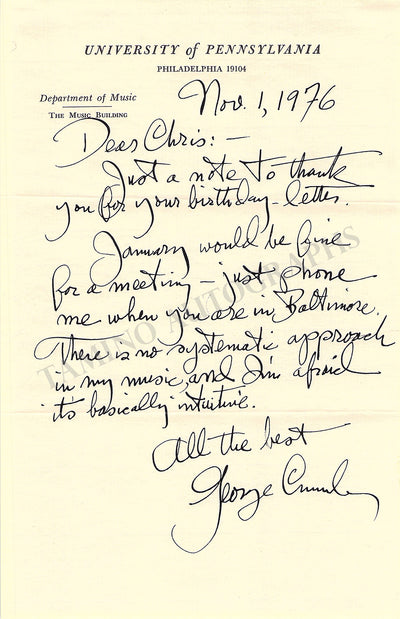 UNIVERSITY of PENNSYLVANIA
PHILADELPHIA 19104
Department of Music
The Music Building
Nov. 1, 1976
Dear Chris: —
Just a note to thank
you for your birthday-letter.
January would be fine
for a meeting — just phone
me when you are in Baltimore.
There is no systematic approach
in my music, and I'm afraid
it's basically intuitive.
All the best
George Crumb
TAMINO AUTOGRAPHS